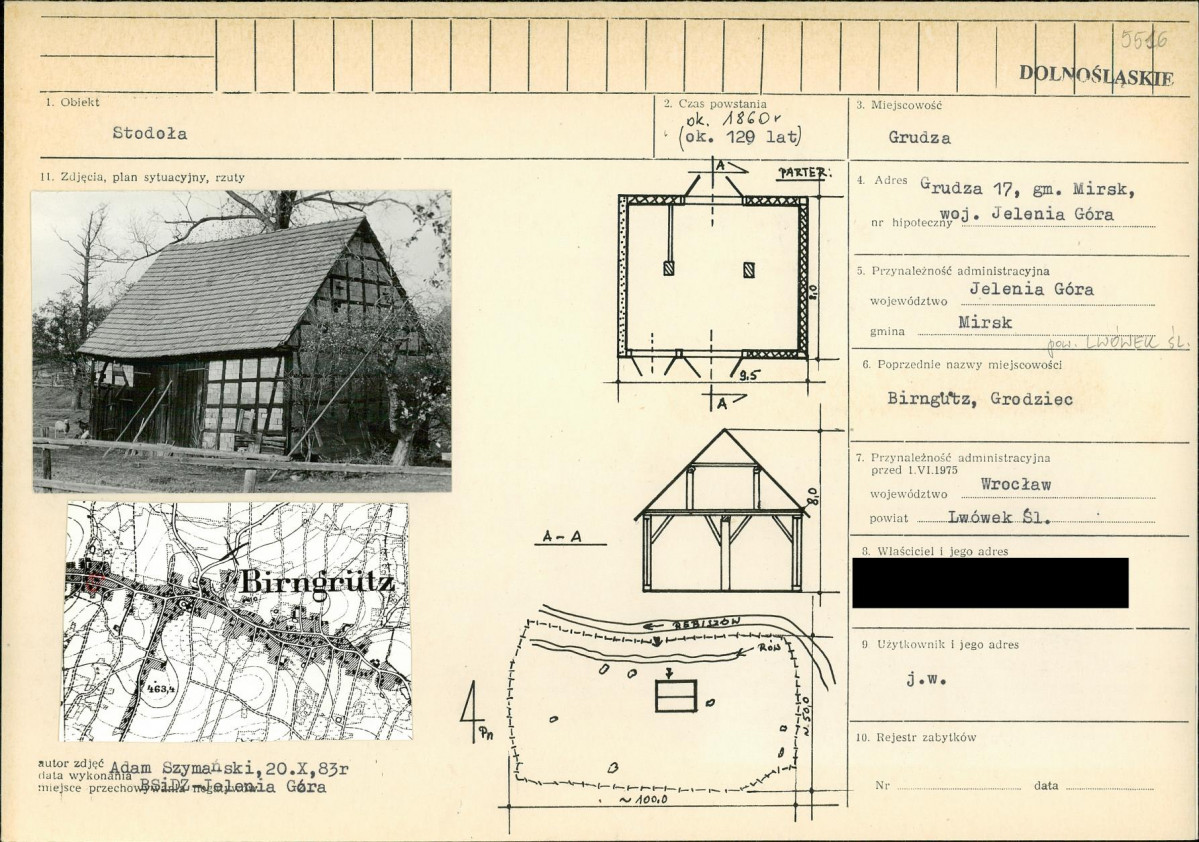 5516
DOLNOŚLĄSKIE
1. Obiekt
Stodoła
2. Czas powstania
ok. 1860 r
(ok. 129 lat)
3. Miejscowość
Grudza
4. Adres Grudza 17, gm. Mirsk,
woj. Jelenia Góra
nr hipoteczny
5. Przynależność administracyjna
Jelenia Góra
województwo
Mirsk
gmina
pow. LWÓWEK ŚL.
6. Poprzednie nazwy miejscowości
Birngütz, Grodziec
7. Przynależność administracyjna
przed 1.VI.1975
Wrocław
województwo
powiat Lwówek Śl.
8. Właściciel i jego adres
9. Użytkownik i jego adres
j.w.
10. Rejestr zabytków
Nr
data
11. Zdjęcia, plan sytuacyjny, rzuty
A
PARTER:
8,0
9,5
A
A-A
8,0
REBISZÓW
RÓW
Pn
~50,0
~100,0
Birngrütz
463,4
autor zdjęć Adam Szymański, 20.X,83r
data wykonania
BSiDZ-Jelenia Góra
miejsce przechowywania negatywów